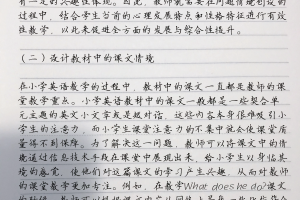 有一定的
过程中，结合学生当前的心理发展特点和性格特征进行有效
性教学，以此来促进全方面的发展与综合性提升。
(二) 设计教材中的课文情境
在小学英语教学的过程中，教材中的课文一直都是教师的课
堂教学重点。小学英语教材中的课文一般都是一些契合单
元主题的英文小文章或是趣对话，这些内容本身很难吸引小
学生的注意力，而小学生课堂注意力的不集中就会使课堂质
量得不到保障。为了解决这一问题，教师可以将课文中的情
境通过信息技术手段在课堂中展现出来，给小学生以身临其
境的感觉，使他们对这篇课文的学习产生兴趣，从而对教师
的课堂教学更加专注。例如，在教学What does he do?课文